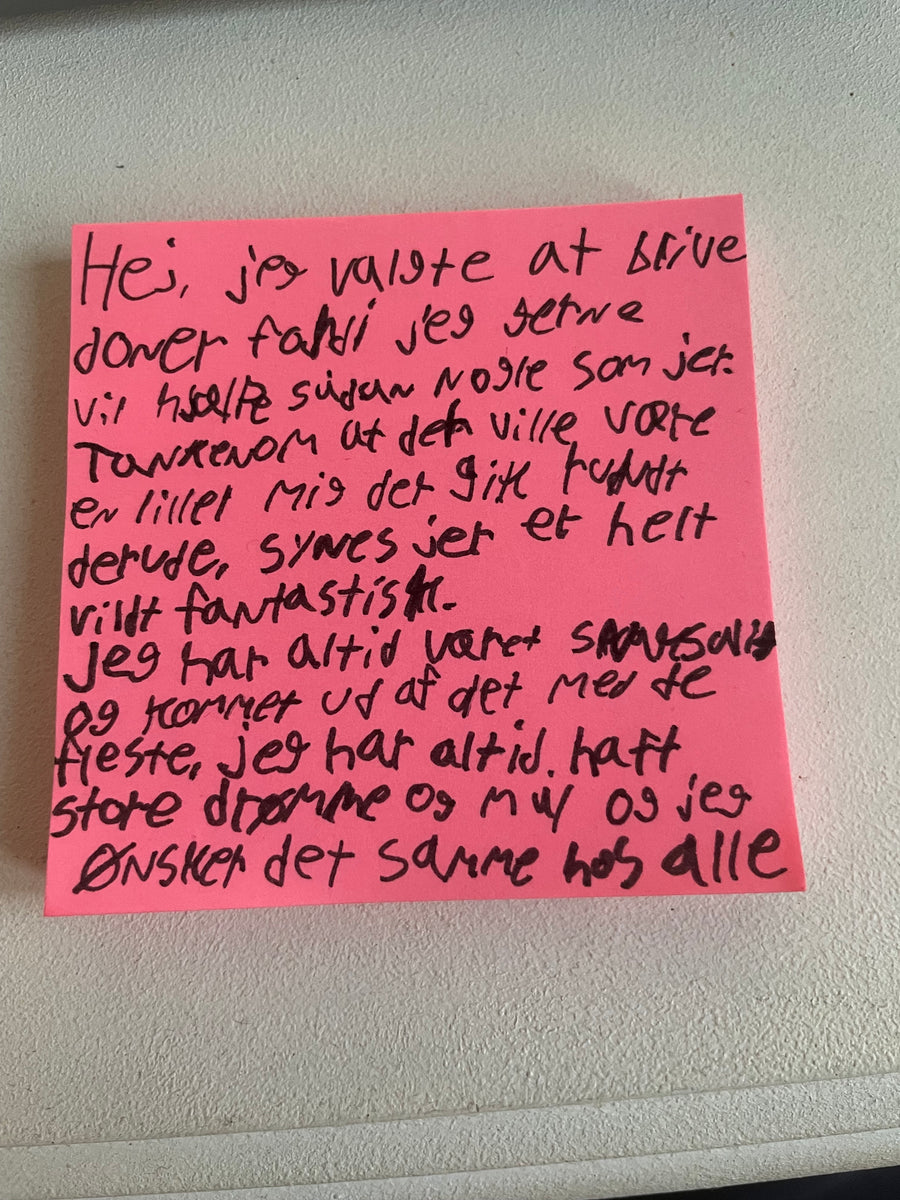 Hej, jeg valgte at blive
doner fordi jeg gerne
vil hjælpe sådan nogle som jer.
Tankenom at der ville være
en lillet mig der gik rundt
derude, synes jer er helt
vildt fantastisk.
jeg har altid været
og kommet ud af det med de
fleste, jeg har altid haft
store drømme og mål og jeg
ønsker det samme hos alle